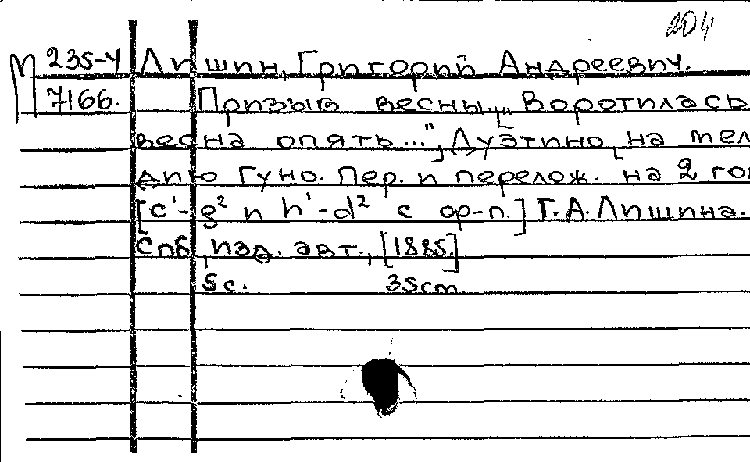 204
М 235-4 Лишин, Григорий Андреевич.
7166. Призыв весны. „Воротилась
весна опять...", Дуэтино на мел
дию Гуно. Пер. и перелож. на 2 го
[c¹-g² и h¹-d² с ф-п.] Г.А. Лишина.
Спб, изд. авт., [1885.]
5 с. 35cm